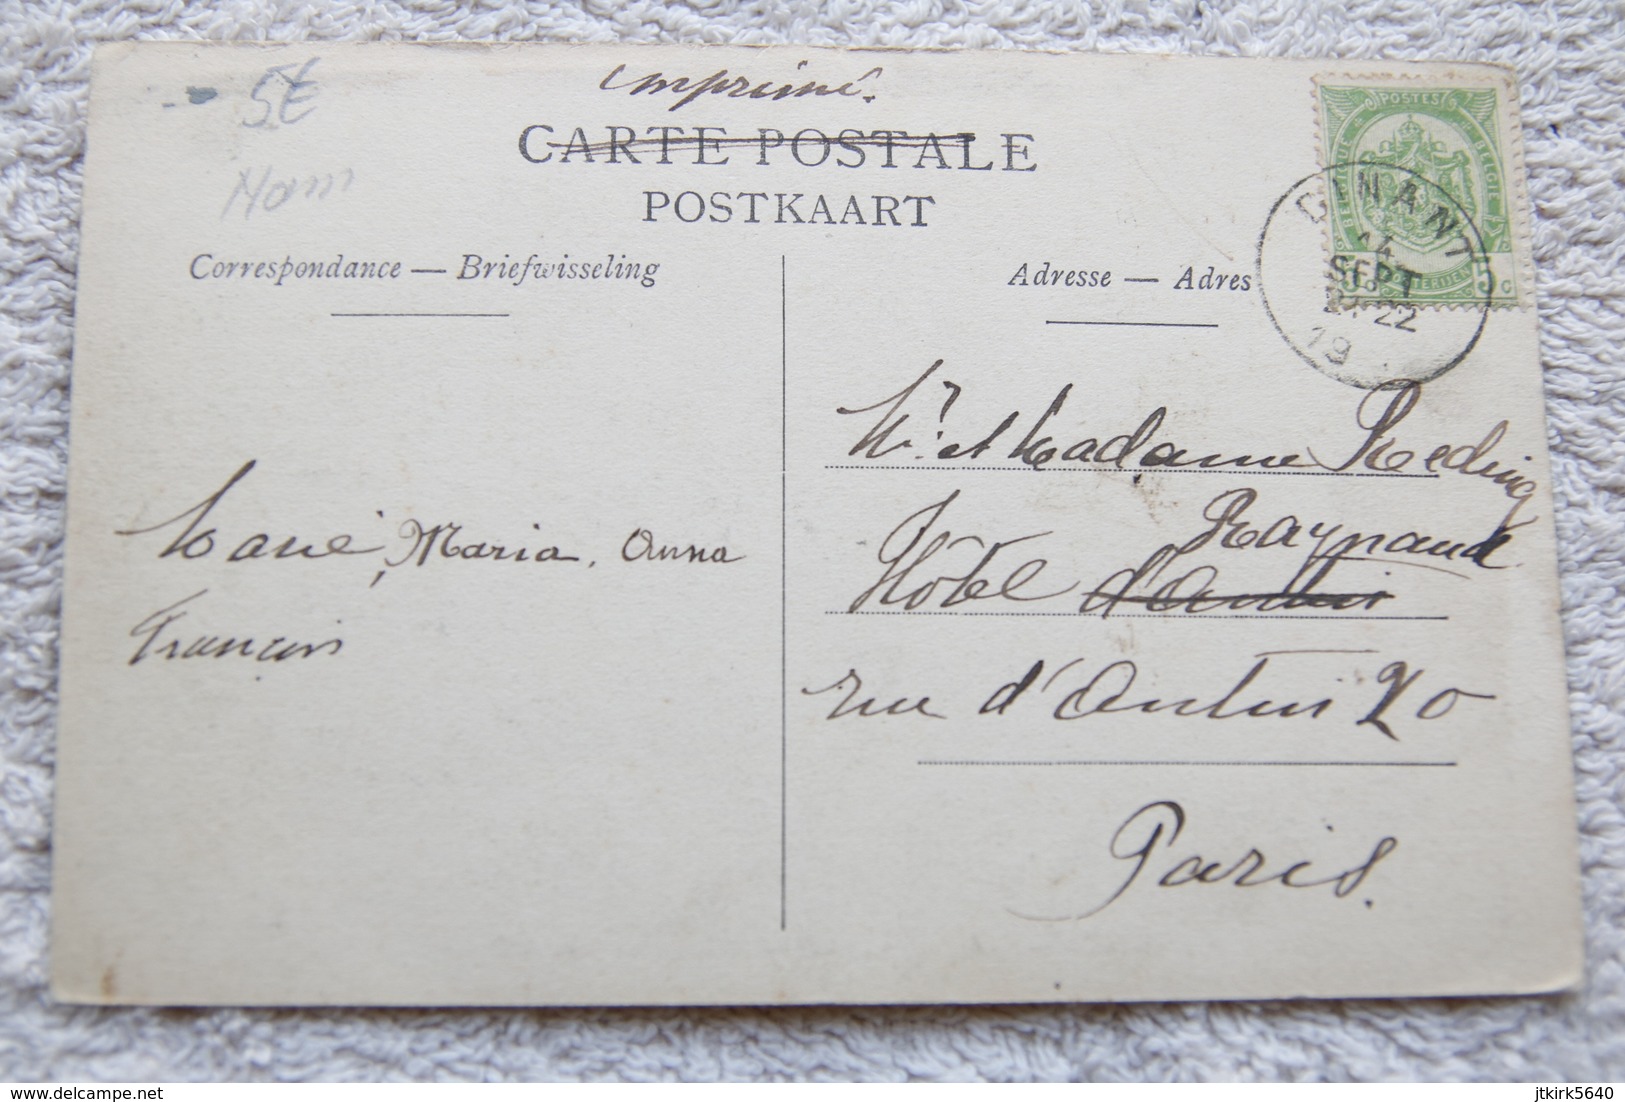 5€
Nam
imprimé.
CARTE POSTALE
POSTKAART
Correspondance — Briefwisseling
Adresse — Adres
POSTES
BELGIQUE
5 C
DINANT
14
SEPT
22
19
Marie, Maria, Anna
François
Mr. et Madame Reeding
Raynaud
Hôtel d'Antin
rue d'Antin 20
Paris.
https://www.delcampe.net
jtkirk5640